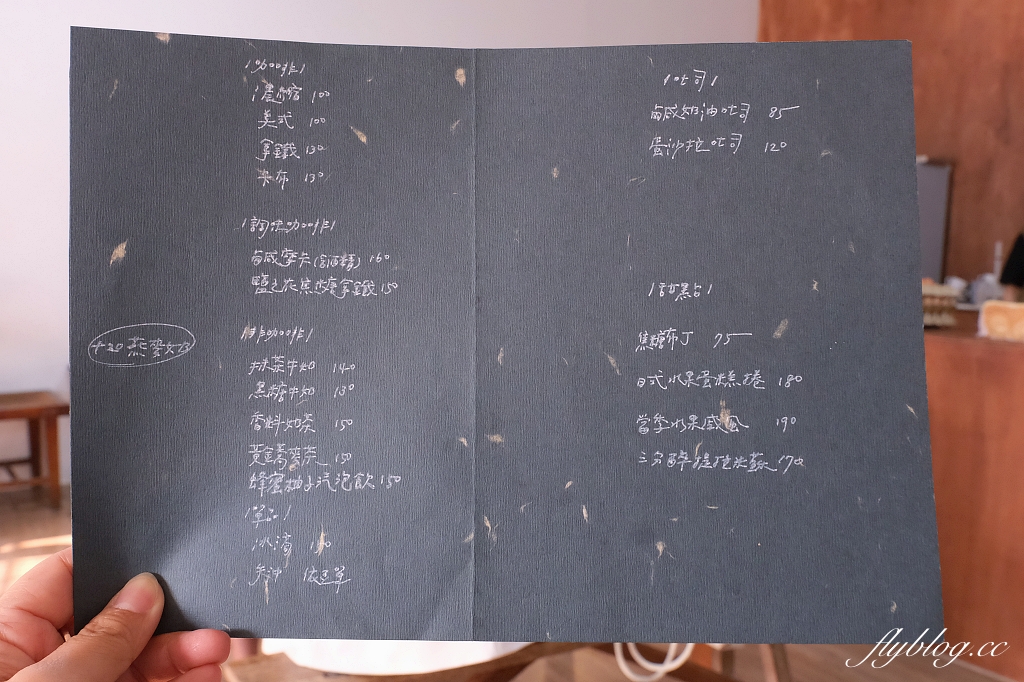 |咖啡|
濃縮 100
美式 100
拿鐵 130
來布 130
|調味咖啡|
鹹摩卡(含酒精) 160
鹽之花焦糖拿鐵 150
|非咖啡|
+20 燕麥奶
抹茶牛奶 140
黑糖牛奶 130
香料奶茶 150
黃金蕎麥茶 150
蜂蜜柚子汽泡飲 150
|單品|
冰滴
手沖 依豆單
|吐司|
鹹奶油吐司 85
蛋沙拉吐司 120
|甜點|
焦糖布丁 75
日式水果蛋糕捲 180
當季水果戚風 190
三分醉提拉米蘇 170
flyblog.cc